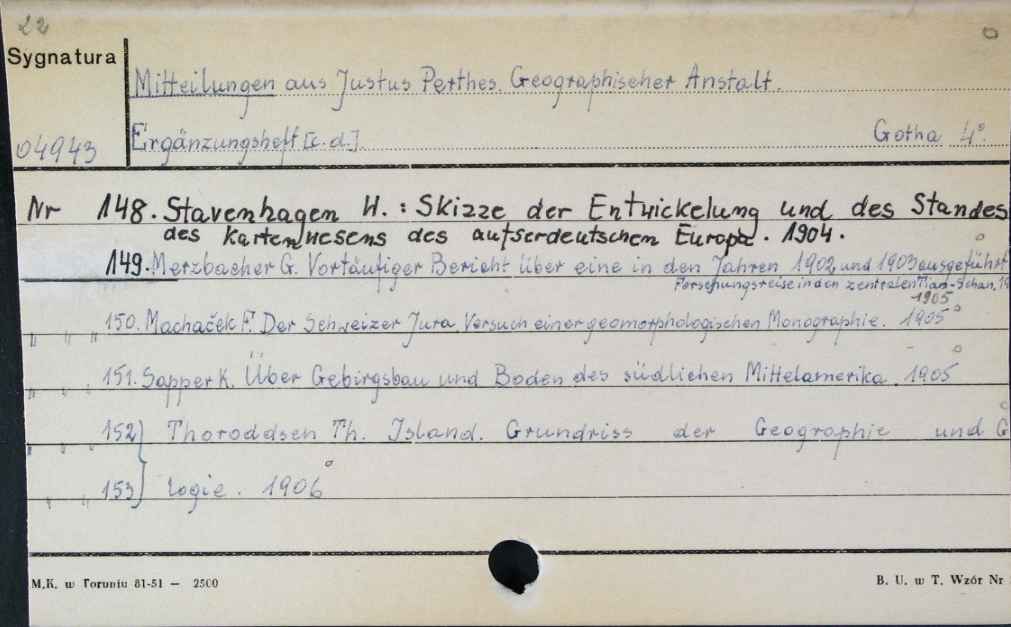 22
Sygnatura
Mitteilungen aus Justus Perthes. Geographischer Anstalt.
04943
Ergänzungsheft [c.d.]. Gotha 4°.
Nr 148. Stavenhagen W.: Skizze der Entwickelung und des Standes
des Kartenwesens des aufserdeutschen Europa. 1904.
149. Merzbacher G. Vorläufiger Bericht über eine in den Jahren 1902 und 1903 ausgeführt
Forschungsreise in den zentralen Tian-Schan, 19
1905
" " " 150. Machaček F. Der Schweizer Jura Versuch einer geomorphologischen Monographie. 1905
" " " 151. Sapper K. Über Gebirgsbau und Boden des südlichen Mittelamerika. 1905
" " " 152} Thoroddsen Th. Island. Grundriss der Geographie und G
" " 153} logie. 1906
M.K. w Toruniu 81-51 — 2500
B. U. w T. Wzór Nr